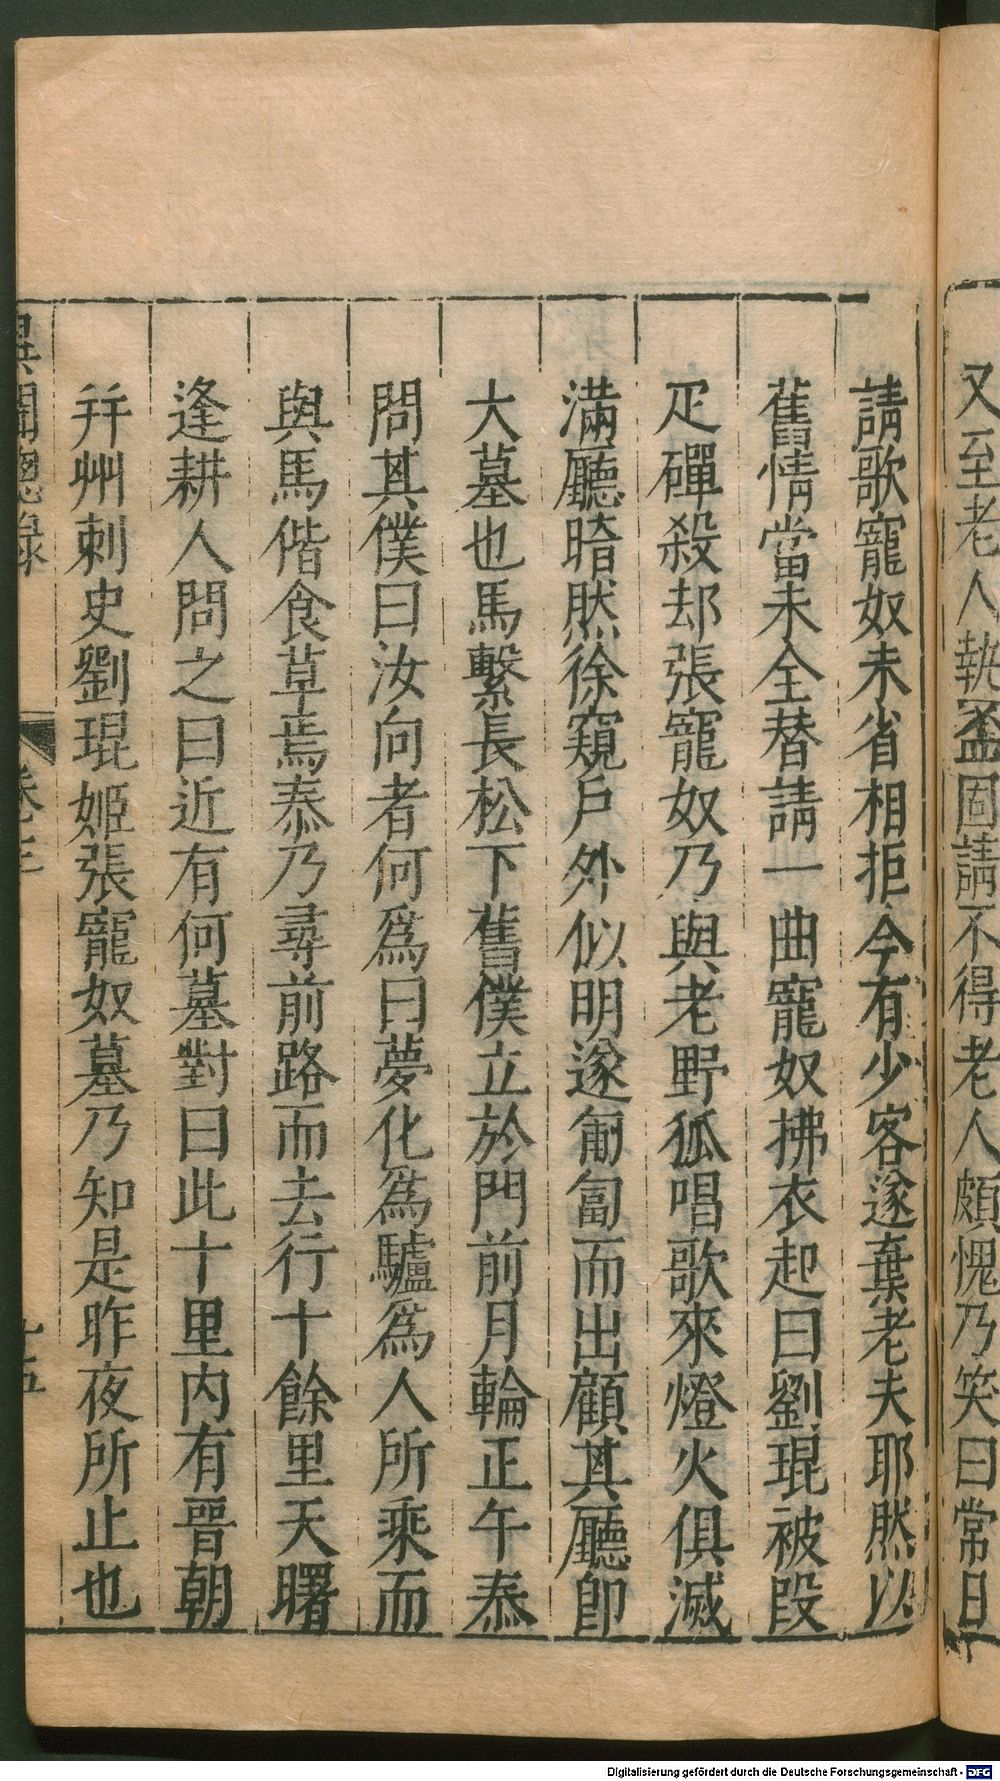 又至老人執盃固請不得老人頗愧乃笑曰常日
請歌寵奴未省相拒今有少客遂棄老夫耶然以
舊情當未全替請一曲寵奴拂衣起曰劉琨被段
疋磾殺却張寵奴乃與老野狐唱歌來燈火俱滅
滿廳暗然徐窺戶外似明遂匍匐而出顧其廳即
大墓也馬繫長松下舊僕立於門前月輪正午泰
問其僕曰汝向者何爲曰夢化爲驢爲人所乘而
與馬偕食草焉泰乃尋前路而去行十餘里天曙
逢耕人問之曰近有何墓對曰此十里內有晉朝
幷州刺史劉琨姬張寵奴墓乃知是昨夜所止也
異聞總錄 卷三 十五
Digitalisierung gefördert durch die Deutsche Forschungsgemeinschaft - DFG